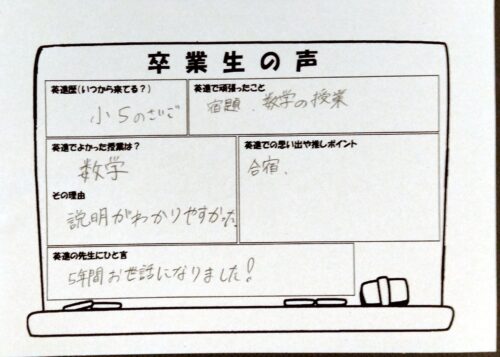 卒業生の声
英進歴(いつから来てる?)
小5のさいご
英進で頑張ったこと
宿題、数学の授業
英進でよかった授業は?
数学
その理由
説明がわかりやすかった
英進での思い出や推しポイント
合宿、
英進の先生にひと言
5年間お世話になりました!